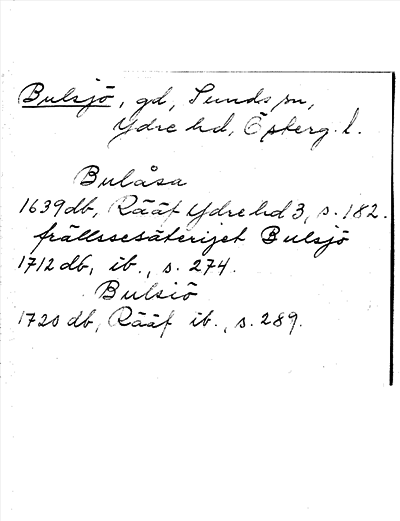 Bulsjö, gd, Sunds sn,
Ydre hd, Österg. l.
Bulåsa
1639 db, Rääf Ydre hd 3, s. 182.
frälssesäterijet Bulsjö
1712 db, ib., s. 274.
Bulsiö
1720 db, Rääf ib., s. 289.